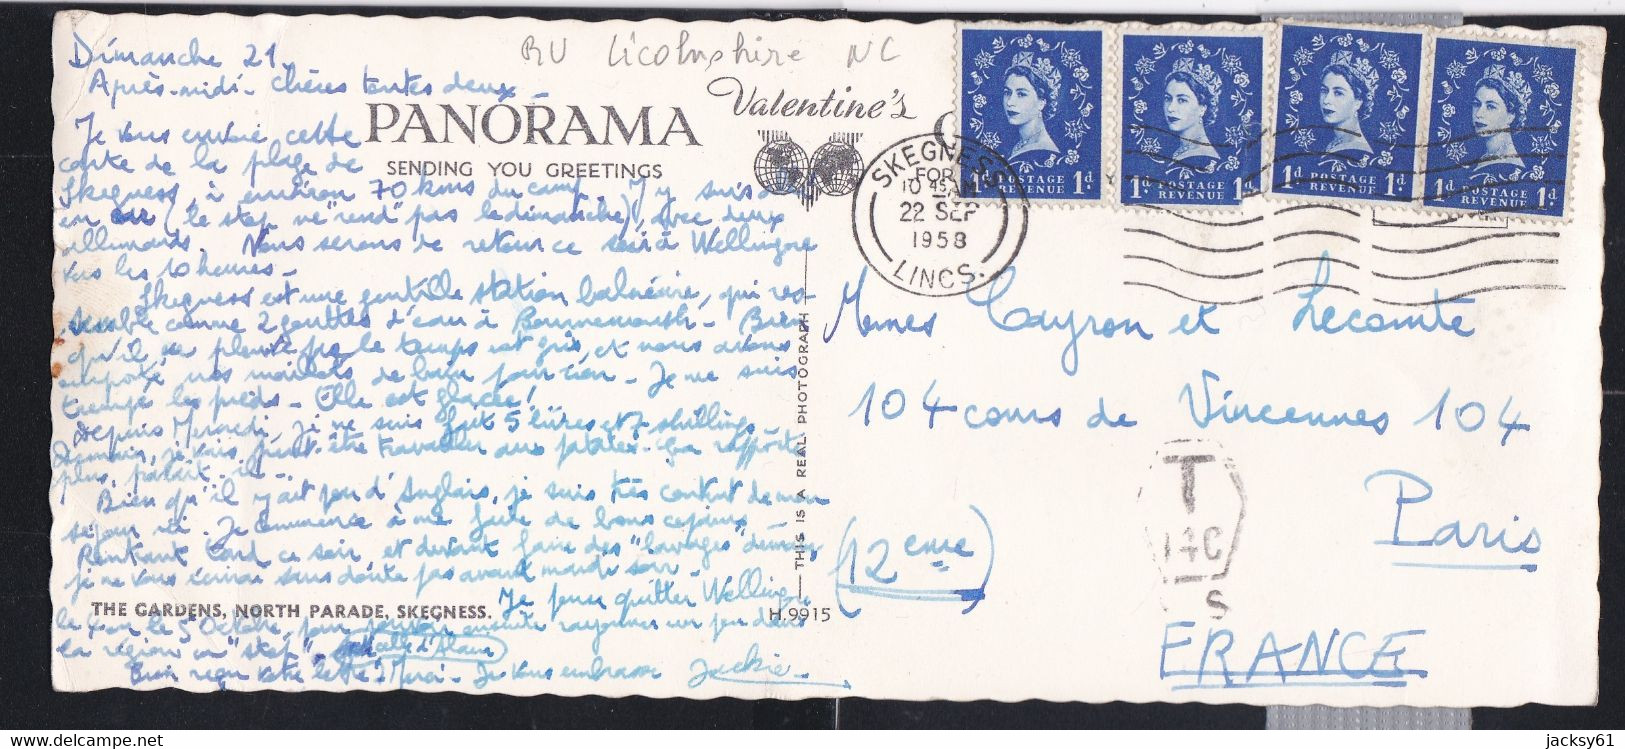 Dimanche 21
RU Licolnpshire NC
Après-midi - Chères tantes deux -
PANORAMA
Valentine's
SENDING YOU GREETINGS
Je vous envoie cette
carte de la plage de
Skegness, à environ 70 kms du camp. J'y suis
(le stop ne "rend" pas le dimanche), avec deux
allemands. Nous serons de retour ce soir à Wellingore
vers les 10 heures -
Skegness est une gentille station balnéaire, qui res-
semble comme 2 gouttes d'eau à Bournemouth - Bien
qu'il ne pleuve pas le temps est gris, et nous avons
emporté nos maillots de bain pour rien - Je me suis
trempé les pieds - Elle est glacée!
Depuis Mercredi, je ne suis fait 5 livres et 7 shillings -
Demain, je vais peut-être travailler aux patates. Ça rapporte
plus, paraît-il -
Bien qu'il y ait peu d'Anglais, je suis très content de mon
séjour ici. Je commence à me faire de bons copains -
Rentrant tard ce soir et devant faire des "lavages" demain
je ne vous écrirai sans doute pas avant mardi soir -
THE GARDENS, NORTH PARADE, SKEGNESS.
H.9915
Je pense quitter Wellingore
le 4 ou le 5 Octobre, pour pouvoir ensuite rayonner un peu dans
la région en "stop" -
celle d'Alain
Bien reçu votre lettre. Merci - Je vous embrasse Jackie -
— THIS IS A REAL PHOTOGRAPH —
SKEGNESS
10 45 AM
22 SEP
1958
LINCS.
POSTAGE
1d REVENUE 1d
POSTAGE
1d REVENUE 1d
POSTAGE
1d REVENUE 1d
POSTAGE
1d REVENUE 1d
Mmes Cayron et Lecomte
104 cours de Vincennes 104
Paris
(12eme)
T
14C
S
FRANCE
delcampe.net
jacksy61